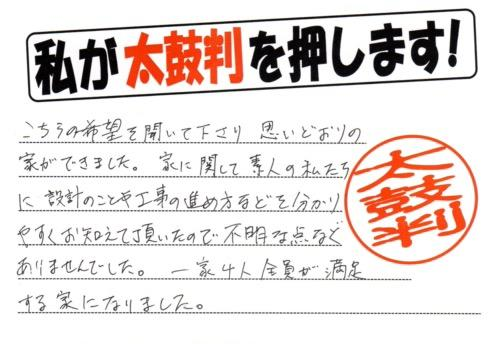 私が太鼓判を押します!
こちらの希望を聞いて下さり 思いどおりの
家ができました。 家に関して素人の私たち
に 設計のことや工事の進め方などを分かり
やすくお知えて頂いたので不明な点など
ありませんでした。 一家4人全員が満足
する家になりました。
太鼓判